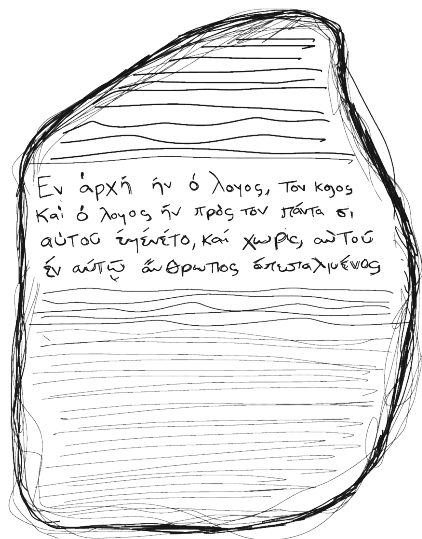 Εν ἀρχῇ ἠν ὁ λογος, τον κοιος
Και ὁ λογος ἠν πρὸς τον πάντα σι
αὐτοῦ ἐγένετο, και χωρις αὐτοῦ
ἐν αὐτῷ ἄνθρωπος ἀπεσταλμένος